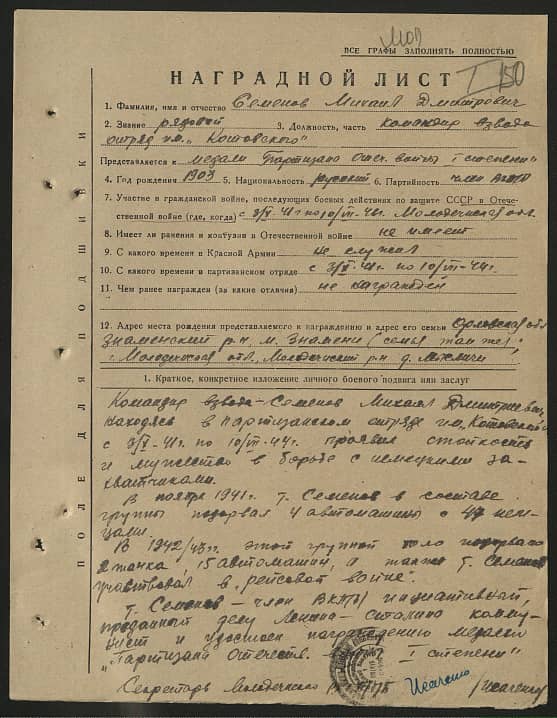 Мол
ВСЕ ГРАФЫ ЗАПОЛНЯТЬ ПОЛНОСТЬЮ
НАГРАДНОЙ ЛИСТ I 150
1. Фамилия, имя и отчество Семенов Михаил Дмитриевич
2. Звание рядовой 3. Должность, часть командир взвода
отряд им. „Котовского"
Представляется к медали Партизану Отеч. войны I степени"
4. Год рождения 1903 5. Национальность русский 6. Партийность член ВКП/б
7. Участие в гражданской войне, последующих боевых действиях по защите СССР в Отече-
ственной войне (где, когда) с 3/X-41г по 10/VII-44г. Молодечнская обл.
8. Имеет ли ранения и контузии в Отечественной войне не имеет
9. С какого времени в Красной Армии не служил
10. С какого времени в партизанском отряде с 3/X-41г. по 10/VII-44г.
11. Чем ранее награжден (за какие отличия) не награжден
12. Адрес места рождения представляемого к награждению и адрес его семьи Орловская обл
Знаменский р-н, м. Знамени (семья там же);
Молодечнская обл., Молодечнский р-н д.
1. Краткое, конкретное изложение личного боевого подвига или заслуг
Командир взвода - Семенов Михаил Дмитриевич,
находясь в партизанском отряде им. Котовского
с 3/X-41г. по 10/VII-44г. проявил стойкость
и мужество в борьбе с немецкими за-
хватчиками.
В ноябре 1941г. т. Семенов в составе
группы подорвал 4 автомашины с 47 нем-
цами.
В 1942/43гг. этой группой было подорвано
2 танка, 15 автомашин, а также т. Семенов
участвовал в „рельсовой войне".
т. Семенов - член ВКП/б/ инициативный,
преданный делу Ленина - Сталина комму-
нист и удостоен награждению медалью
„Партизану Отечеств. I степени"
Секретарь Молодечнского
ПОЛЕ ДЛЯ ПОДШИВКИ